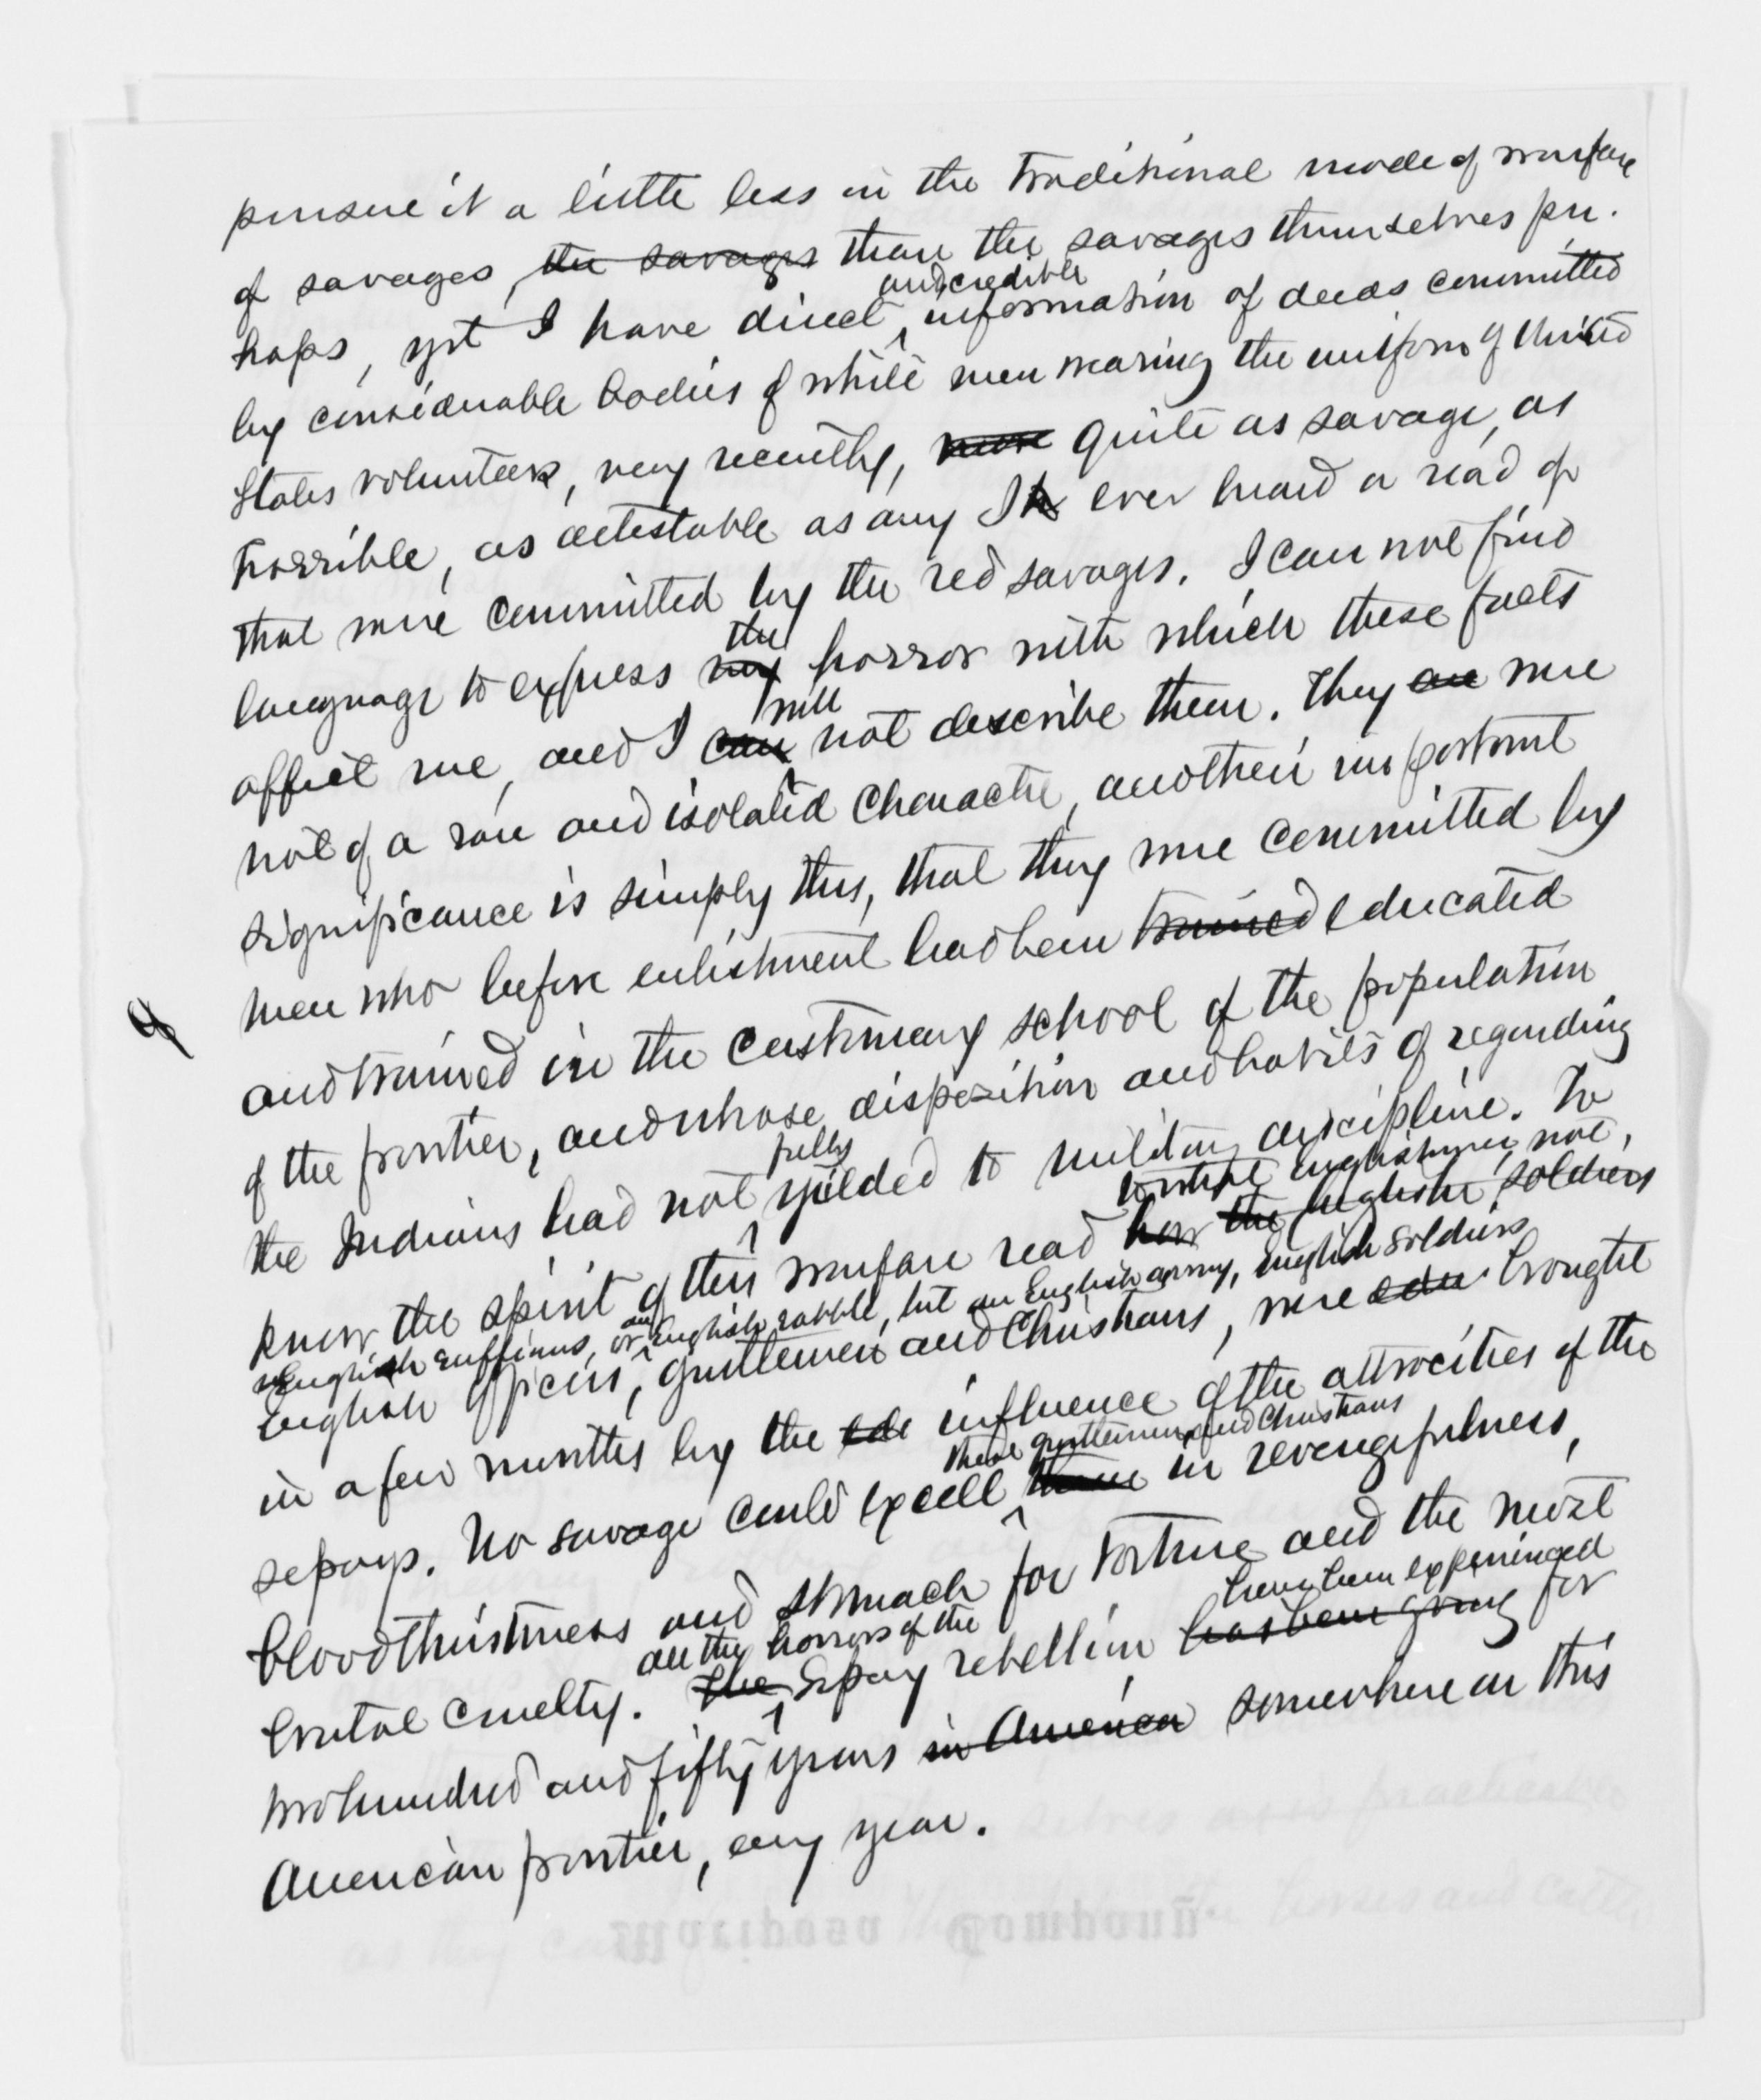 pursue it a little less in the traditional mode of warfare
of savages, the savages than the savages themselves per-
and credible
haps, yet I have direct information of deeds committed
by considerable bodies of white men wearing the uniform of United
States volunteers, very recently, more quite as savage, as
horrible, as detestable as any I h ever heard or read of
that were committed by the red savages. I can not find
the
language to express my horror with which these facts
will
affect me, and I can not describe them. They are were
not of a rare and isolated character, and their important
significance is simply this, that they were committed by
men who before enlistment had been trained educated
and trained in the customary school of the population
of the frontier, and whose disposition and habits of regarding
fully
the Indians had not yielded to military discipline. To
to what Englishmen, not,
know the spirit of this warfare read how the English soldiers
English ruffians, or an English rabble, but an English army, English soldiers
English officers, gentlemen and Christians, were edu brought
in a few months by the edu influence of the attrocities of the
these gentlemen and Christians
sepoys. No savage could excell them in revengefulness,
bloodthirstiness and stomach for torture and the most
all the horrors of the have been experienced
brutal cruelty. The Sepoy rebellion has been going for
two hundred and fifty years in America somewhere on this
American frontier, every year.